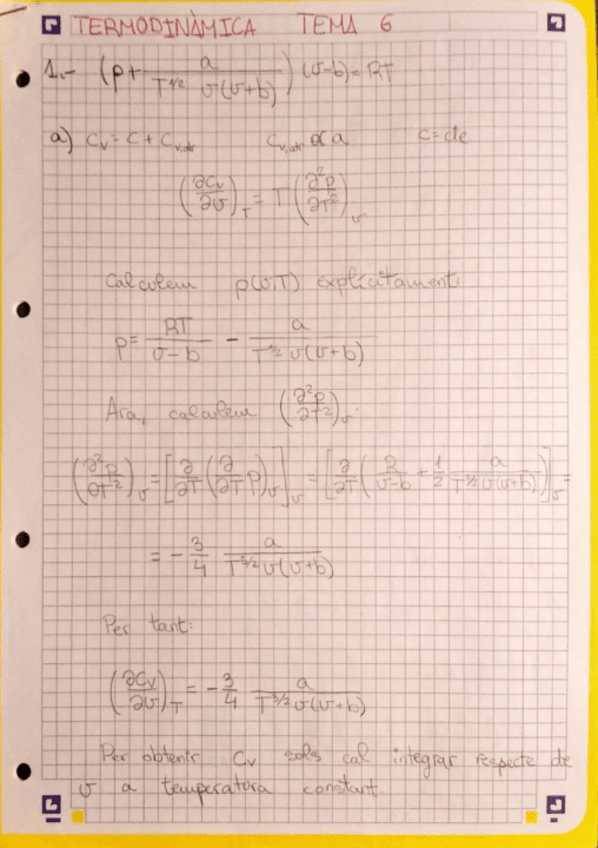 TERMODINÀMICA TEMA 6
1.- (p + a / (T^{1/2} v(v+b))) (v-b) = RT
a) C_v = C + C_{v,atr} C_{v,atr} ∝ a C = cte
(∂C_v/∂v)_T = T (∂²p/∂T²)_v
Calculem p(v,T) explícitament:
p = RT/(v-b) - a/(T^{1/2} v(v+b))
Ara, calculem (∂²p/∂T²)_v.
(∂²p/∂T²)_v = [∂/∂T (∂/∂T p)_v]_v = [∂/∂T (R/(v-b) + 1/2 a/(T^{3/2} v(v+b)))]_v =
= - 3/4 a/(T^{5/2} v(v+b))
Per tant:
(∂C_v/∂v)_T = - 3/4 a/(T^{3/2} v(v+b))
Per obtenir C_v sols cal integrar respecte de
v a temperatura constant.